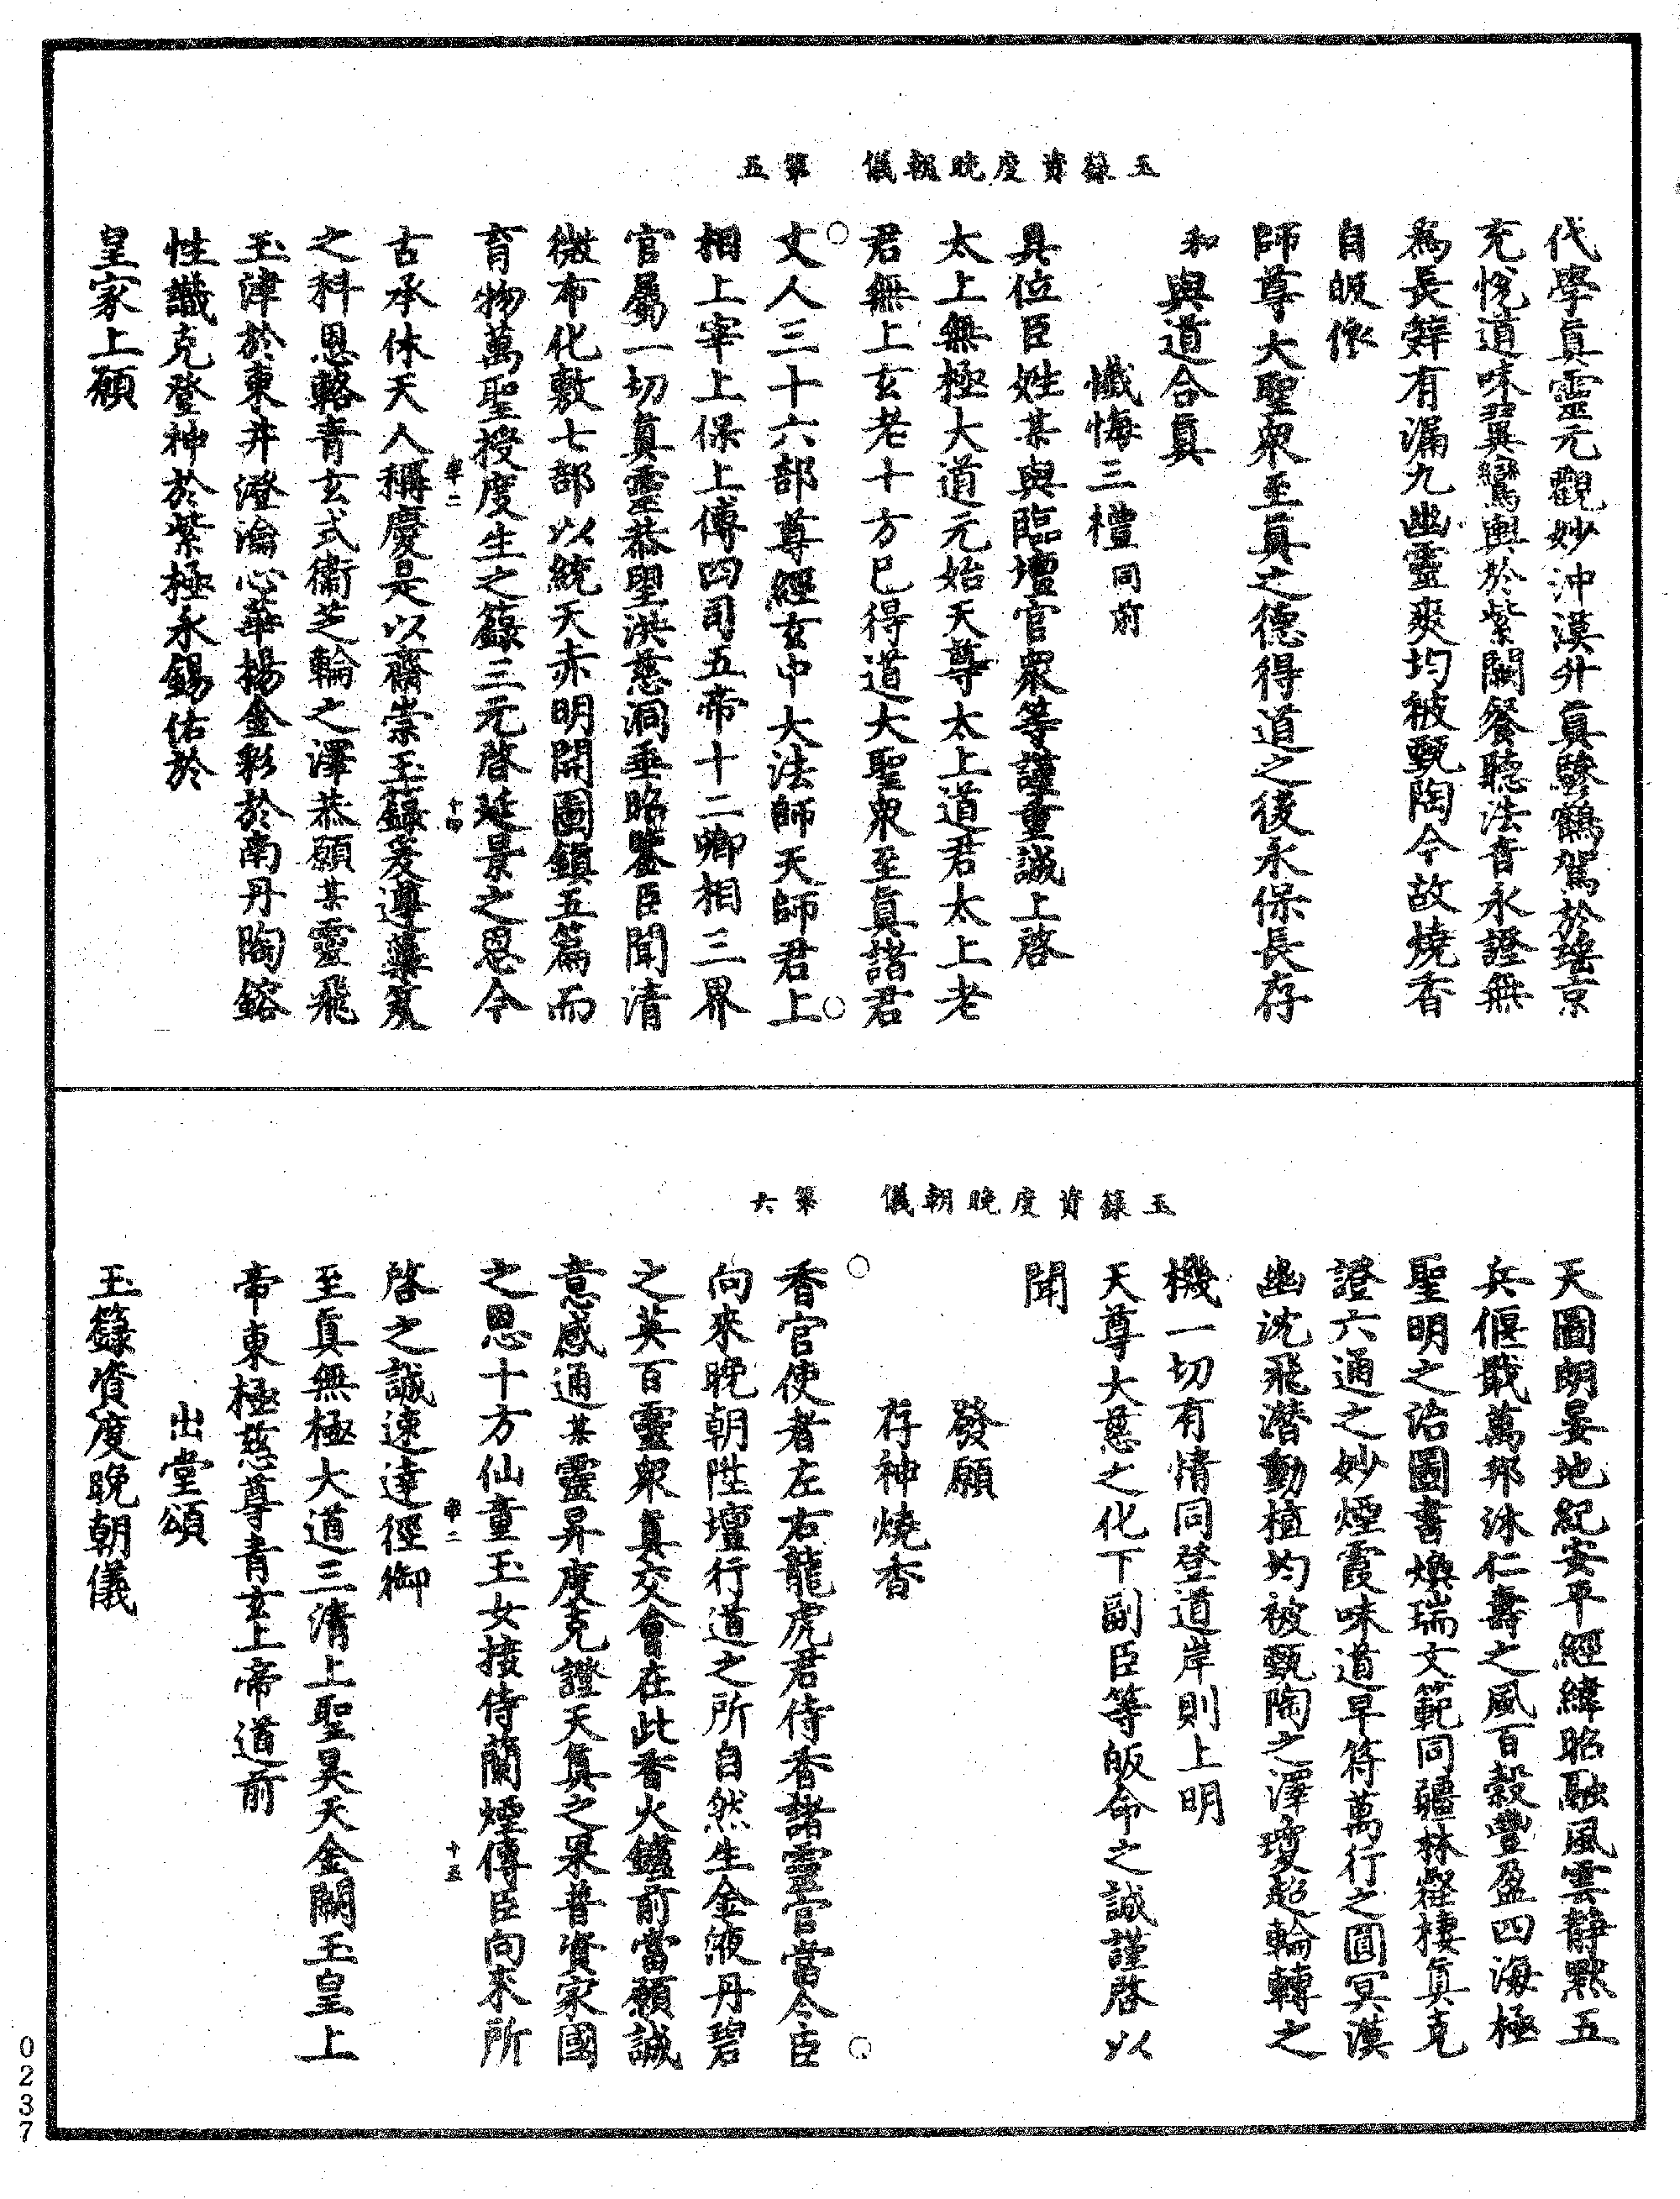 玉籙資度晚朝儀　第五
代學真靈元觀妙沖漠升真驂鶴駕於瑤京
充悅道味翼鸞輿於紫闕餐聽法音永證無
為長辭有漏九幽靈爽均被甄陶今故燒香
自皈依
師尊大聖眾至真之德得道之後永保長存
和與道合真
懺悔三禮同前
具位臣姓某與臨壇官眾等謹重誠上啓
太上無極大道元始天尊太上道君太上老
君無上玄老十方已得道大聖眾至真諸君
丈人三十六部尊經玄中大法師天師君上
相上宰上保上傅四司五帝十二卿相三界
官屬一切真靈恭望洪慈洞垂昭鑒臣聞清
微布化敷七部以統天赤明開圖鎮五篇而
育物萬聖授度生之籙三元啓延景之恩今
章二
十四
古承休天人稱慶是以齋崇玉籙爰遵蘂笈
之科恩輅青玄式衛芝輪之澤恭願某靈飛
玉津於東井澄瀹心華揚金彩於南丹陶鎔
性識克登神於紫極永錫佑於
皇家上願
玉籙資度晚朝儀　第六
天圖朗晏地紀安平經緯昭融風雲靜默五
兵偃戢萬邦沐仁壽之風百穀豐盈四海極
聖明之治圖書煥瑞文範同疆林壑棲真克
證六通之妙煙霞味道早符萬行之圓冥漠
幽沈飛潛動植均被甄陶之澤瓊超輪轉之
機一切有情同登道岸則上明
天尊大慈之化下副臣等皈命之誠謹啓以
聞
發願
存神燒香
香官使者左右龍虎君侍香諸靈官當令臣
向來晚朝陞壇行道之所自然生金液丹碧
之英百靈眾真交會在此香火鑪前當願誠
意感通某靈昇度克證天真之果普資家國
之恩十方仙童玉女接侍蘭煙傳臣向來所
章二
十五
啓之誠速達徑御
至真無極大道三清上聖昊天金闕玉皇上
帝東極慈尊青玄上帝道前
出堂頌
玉籙資度晚朝儀
0237